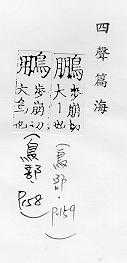 四聲篇海
鵬步崩切大鳥也
(鳥部 P.159)
鵬步崩切大鳥也
(鳥部 P158)